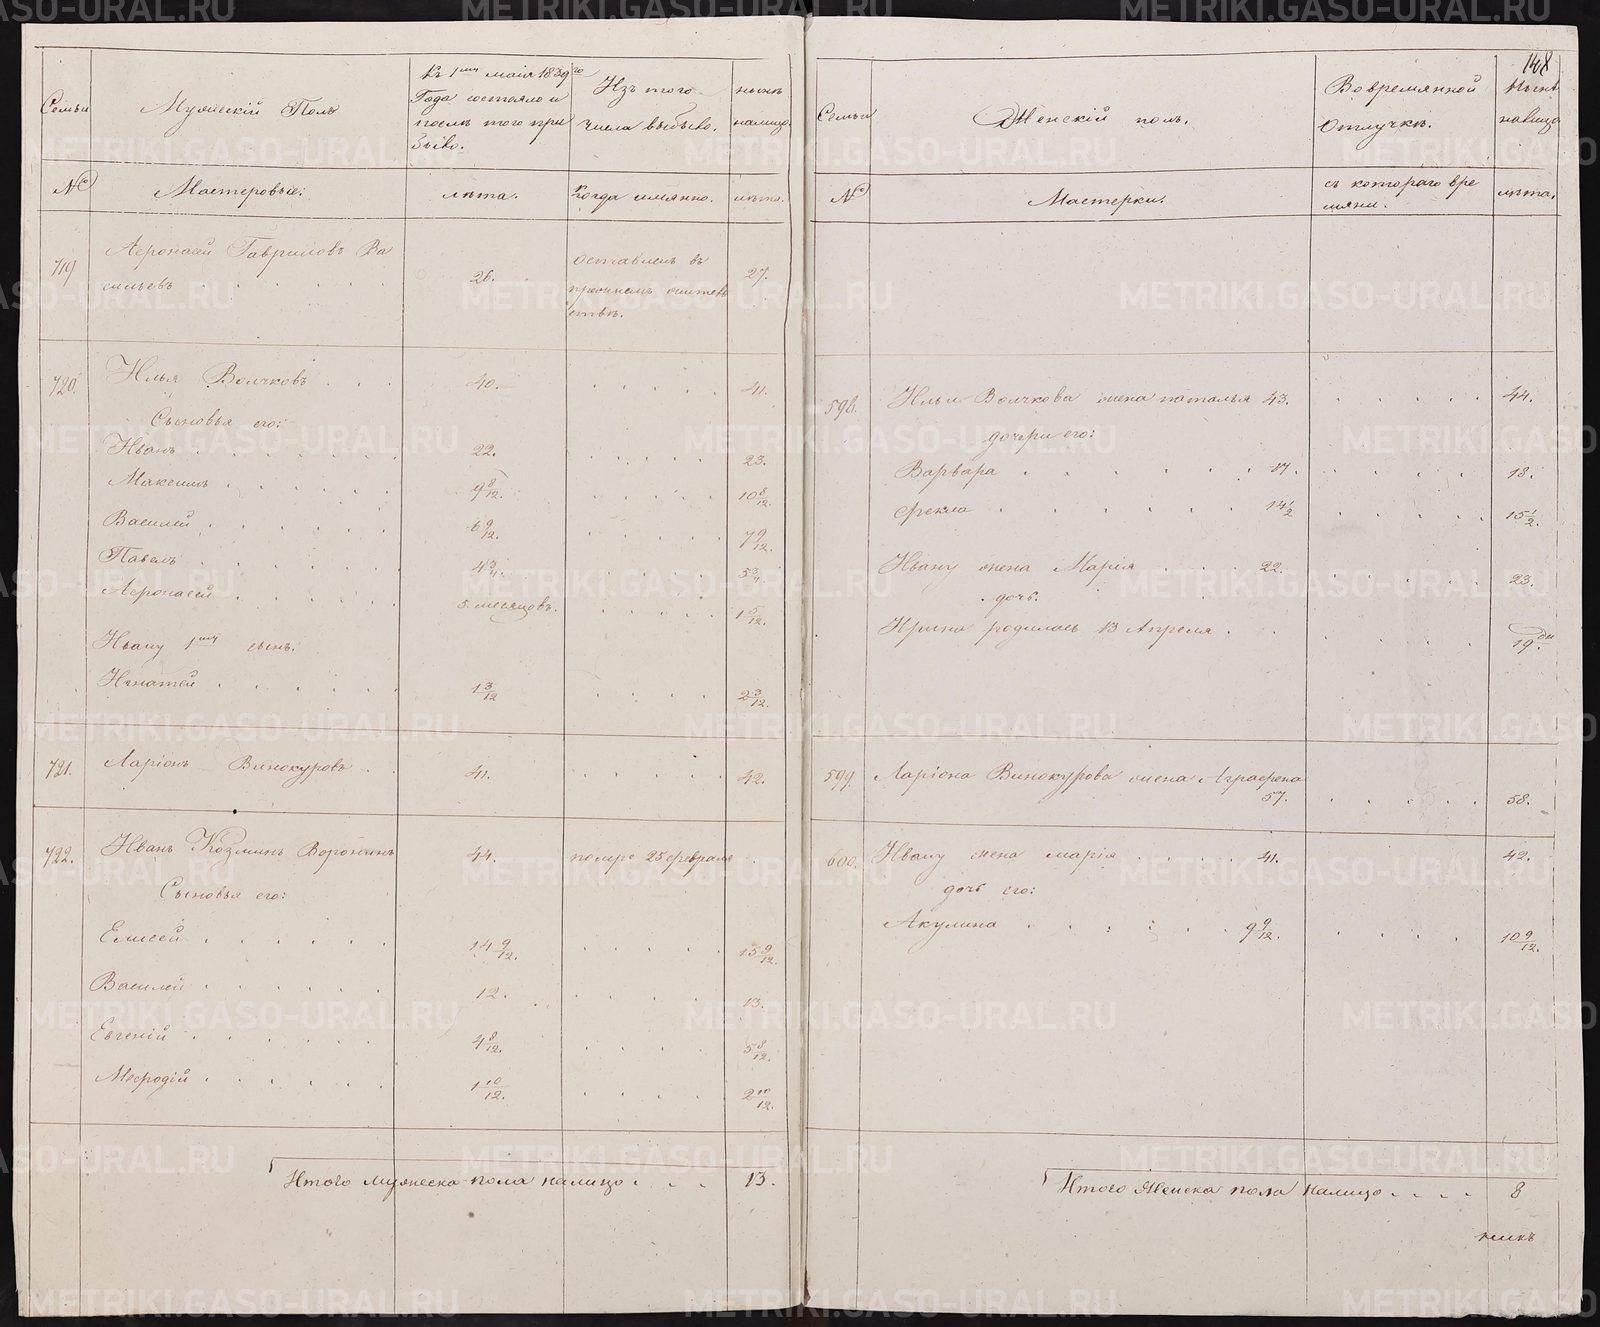 148
Семьи
Мужескій Полъ
Къ 1му маія 1839го
Года состояло и
послѣ того при
было.
Изъ того
числа выбыло.
нынѣ
налицо.
№
Мастеровые:
лѣта.
Когда имянно.
лѣта.
719
Афонасей Гавриловъ Ва
сильевъ
26.
оставленъ въ
27.
720.
Илья Волчковъ
40.
41.
Сыновья его:
Иванъ
22.
23.
Максимъ
9 8/12.
10 8/12.
Василей
6 9/12.
7 9/12.
Павелъ
4 3/4.
5 3/4.
Афонасей
5. месяцовъ.
1 5/12.
Ивану 1му сынъ.
Игнатей
1 3/12
2 3/12.
721.
Ларіонъ Винокуровъ
41.
42.
722.
Иванъ Козминъ Воронинъ
44.
помре 25 февраля
Сыновья его:
Елисей
14 9/12.
15 9/12.
Василей
12.
13.
Евгеній
4 8/12.
5 8/12.
Мефодій
1 10/12.
2 10/12.
Итого мужеска пола налицо
13.
Семьи
Женскій полъ.
Вовремянной
Отлучкѣ.
Нынѣ
налицо
№
Мастерки.
съ котораго вре
мяни.
лѣта.
598.
Ильи Волчкова жена наталья 43.
44.
дочери его:
Варвара
17.
18.
Фекла
14 1/2
15 1/2.
Ивану жена Марія
22.
23.
дочь.
Ирина родилась 13 Апреля
19 дн.
599.
Ларіона Винокурова жена Аграфена
57.
58.
600.
Ивану жена марія
41.
42.
дочь его:
Акулина
9 9/12.
10 9/12.
Итого Женска пола налицо
8
METRIKI.GASO-URAL.RU